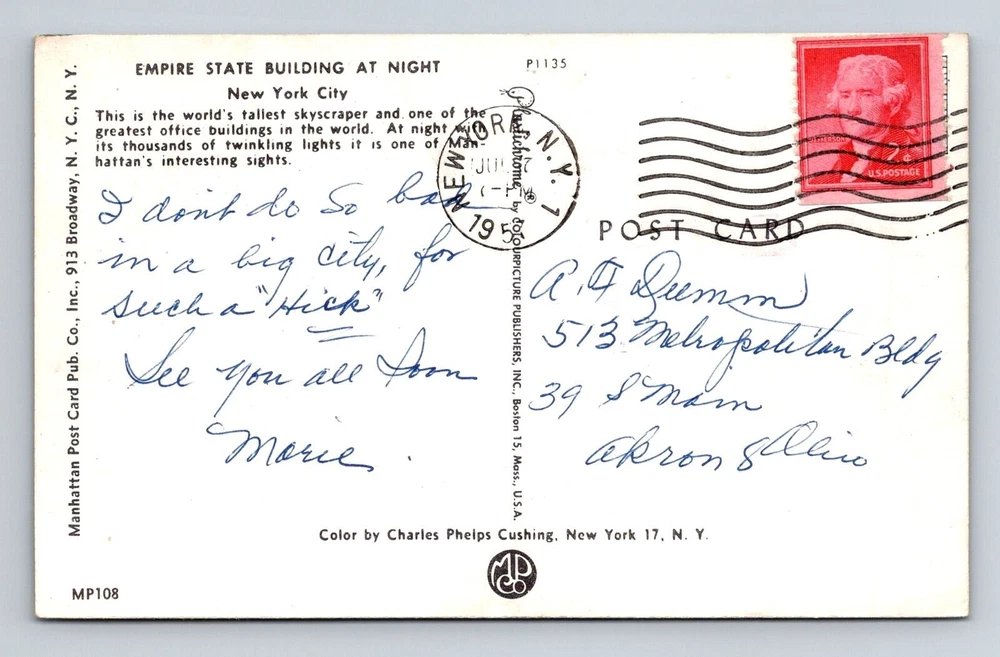 EMPIRE STATE BUILDING AT NIGHT
New York City
This is the world's tallest skyscraper and one of the
greatest office buildings in the world. At night with
its thousands of twinkling lights it is one of Man-
hattan's interesting sights.
P1135
I don't do so bad
in a big city, for
such a "Hick"
See you all soon
Marie.
Manhattan Post Card Pub. Co., Inc., 913 Broadway, N. Y. C., N. Y.
Plastichrome ® by COLOURPICTURE PUBLISHERS, INC., Boston 15, Mass., U.S.A.
NEW YORK, N.Y. 1
195
2¢
U.S. POSTAGE
POST CARD
A. F. Dumm
513 Metropolitan Bldg
39 S Main
Akron 8 Ohio
Color by Charles Phelps Cushing, New York 17, N. Y.
MP Co.
MP108